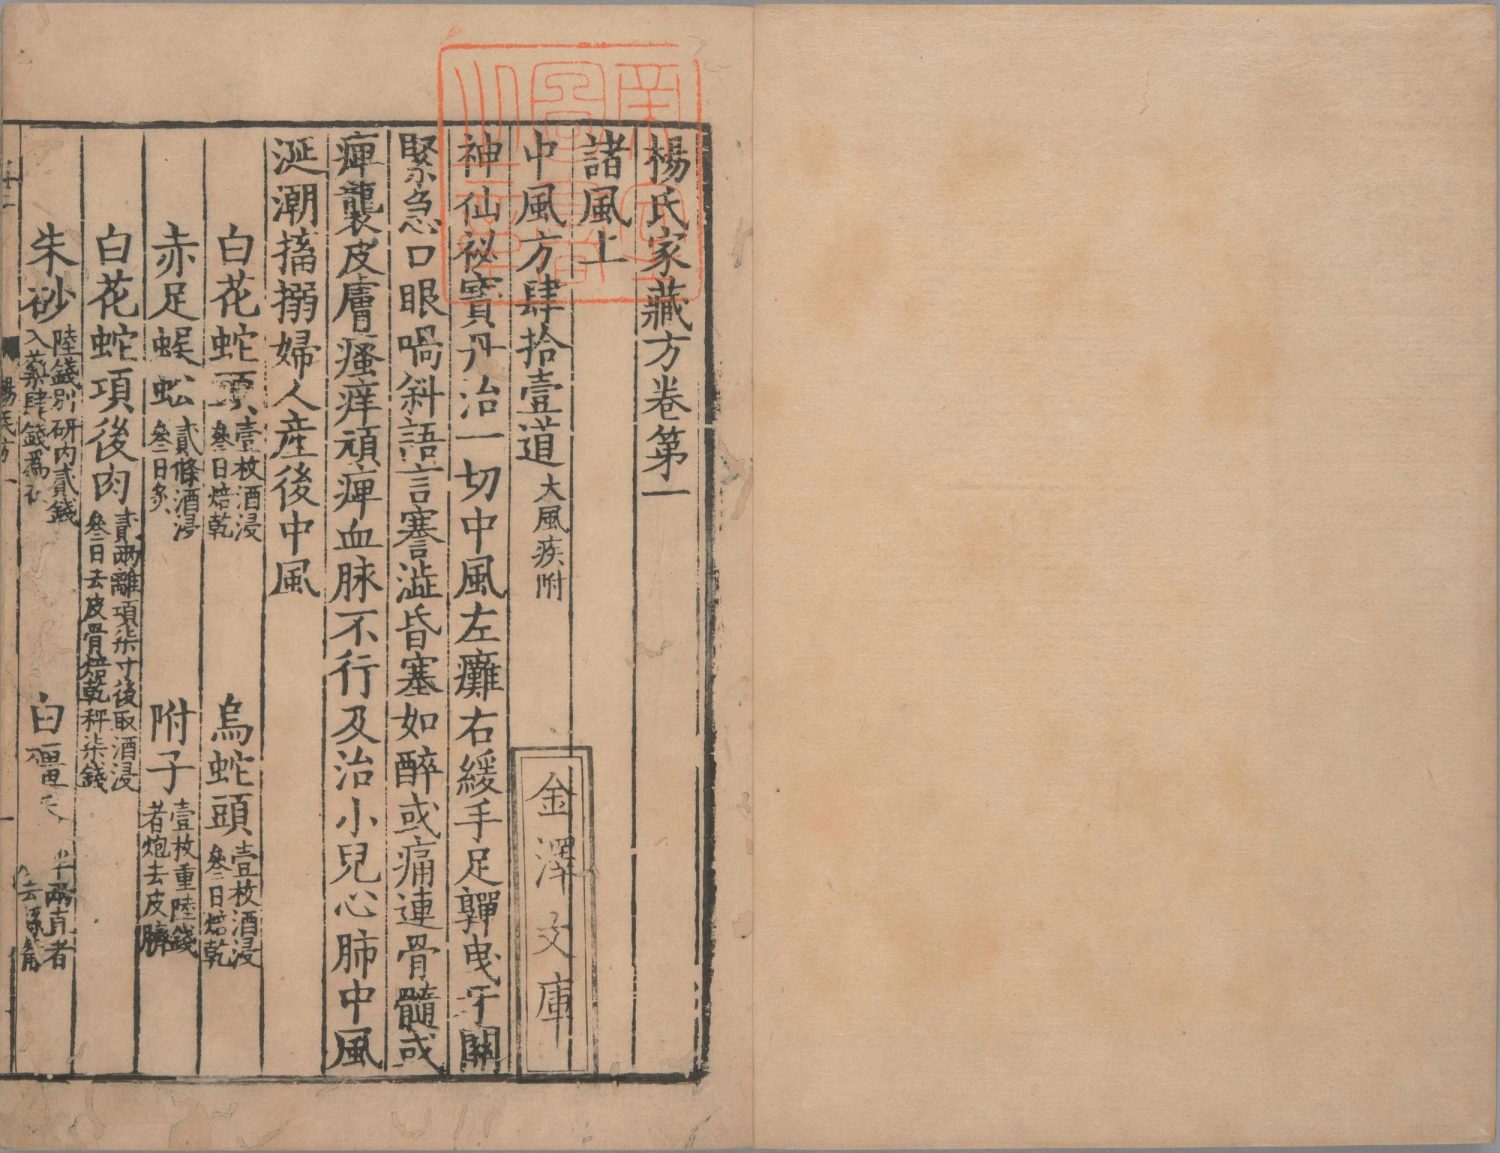 楊氏家藏方卷第一
諸風上
中風方肆拾壹道 大風疾附
神仙祕寶丹治一切中風左癱右緩手足軃曳牙關
緊急口眼喎斜語言謇澁昏塞如醉或痛連骨髓或
痺襲皮膚瘙痒頑痺血脉不行及治小兒心肺中風
涎潮搐搦婦人産後中風
白花蛇頭 壹枚酒浸叄日焙乾 烏蛇頭 壹枚酒浸叄日焙乾
赤足蜈蚣 貳條酒浸叄日炙 附子 壹枚重陸錢者炮去皮臍
白花蛇項後肉 貳兩離項柒寸後取酒浸叄日去皮骨焙乾秤柒錢
朱砂 陸錢別研內貳錢入藥肆錢爲衣 白殭 半兩直者去絲
金澤文庫
楊氏方一